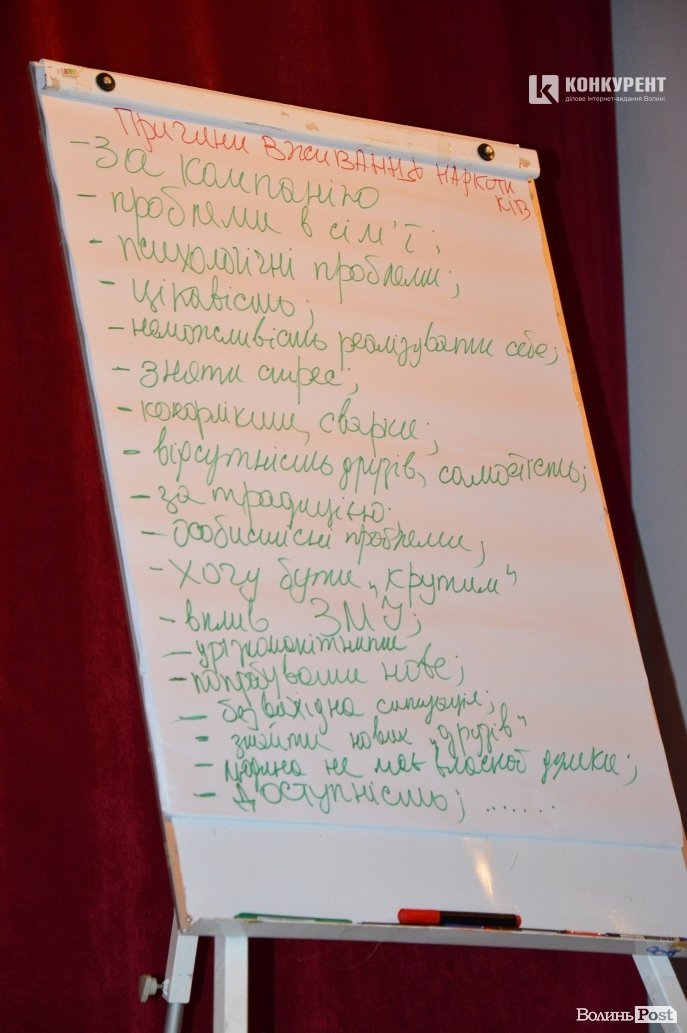 КОНКУРЕНТ
ділове інтернет-видання Волині
Причини вживання наркоти
ків
- За компанію
- проблеми в сім'ї;
- психологічні проблеми;
- цікавість;
- неможливість реалізувати себе;
- зняти стрес;
- конфлікти, сварки;
- відсутність друзів, самотність;
- за традицією.
- особистісні проблеми;
- хочу бути „крутим"
- вплив ЗМІ;
- урізноманітнити
- попробувати нове;
- безвихідна ситуація;
- знайти нових „друзів"
- людина не має власної думки;
- Доступність; .......
ВолиньPost